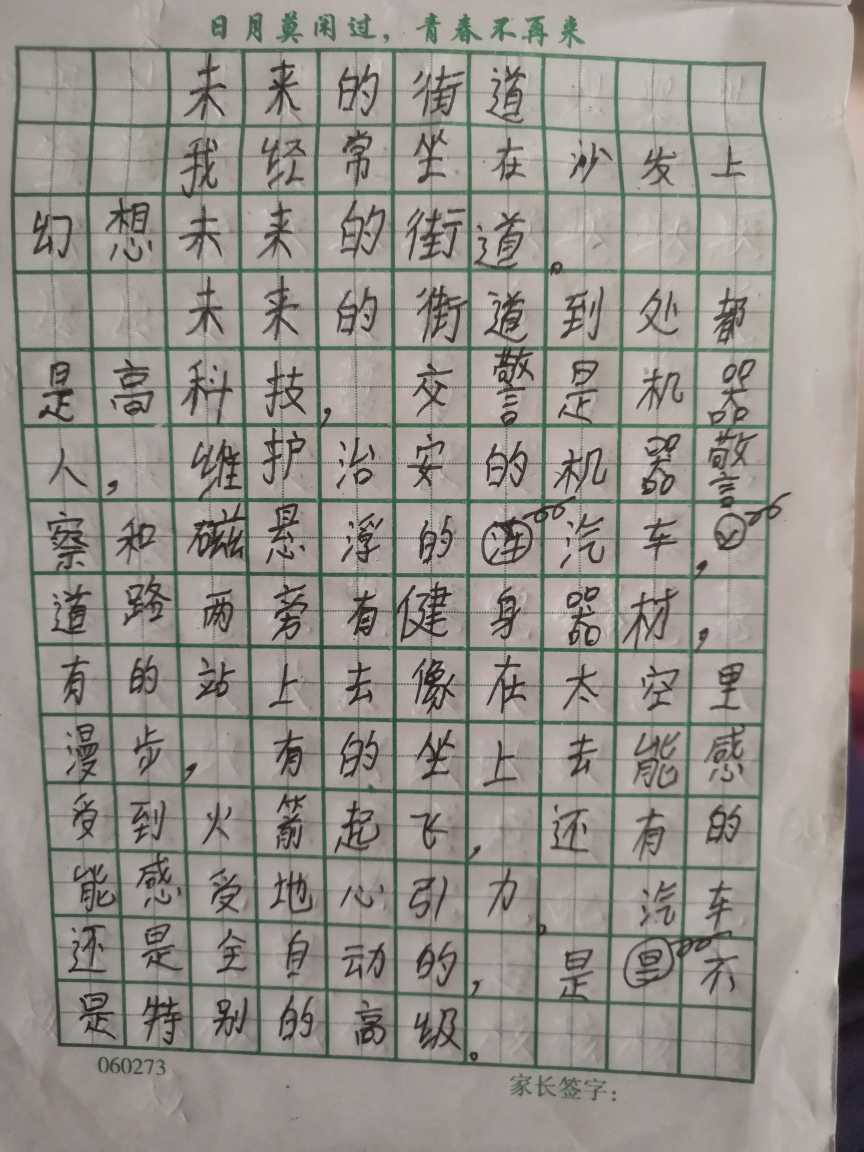 日月莫闲过，青春不再来
未来的街道
我经常坐在沙发上
幻想未来的街道。
未来的街道到处都
是高科技，交警是机器
人，维护治安的机器警
察和磁悬浮的汽车，
道路两旁有健身器材，
有的站上去像在太空里
漫步，有的坐上去能感
受到火箭起飞，还有的
能感受地心引力。汽车
还是全自动的，是不
是特别的高级。
060273
家长签字：